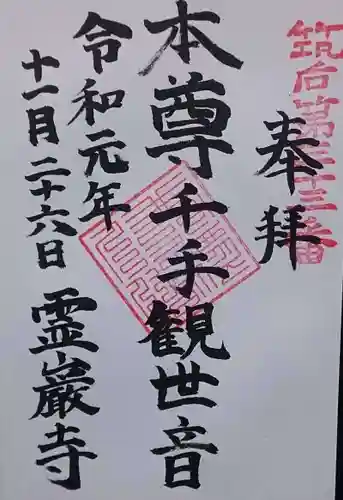 筑后第三十三番
奉拝
本尊千手観世音
令和元年
十一月二十六日
霊巖寺